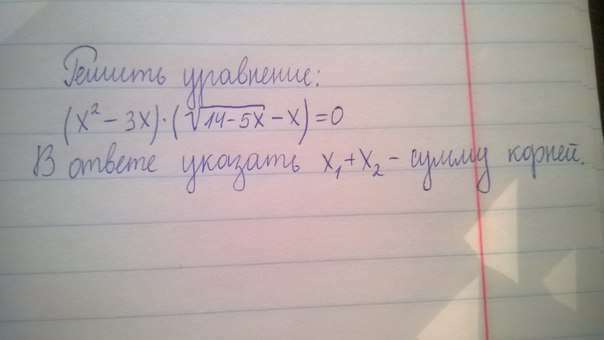 Решить уравнение:
(x² – 3x)·(√14–5x – x)=0
В ответе указать x₁+x₂ – сумму корней.